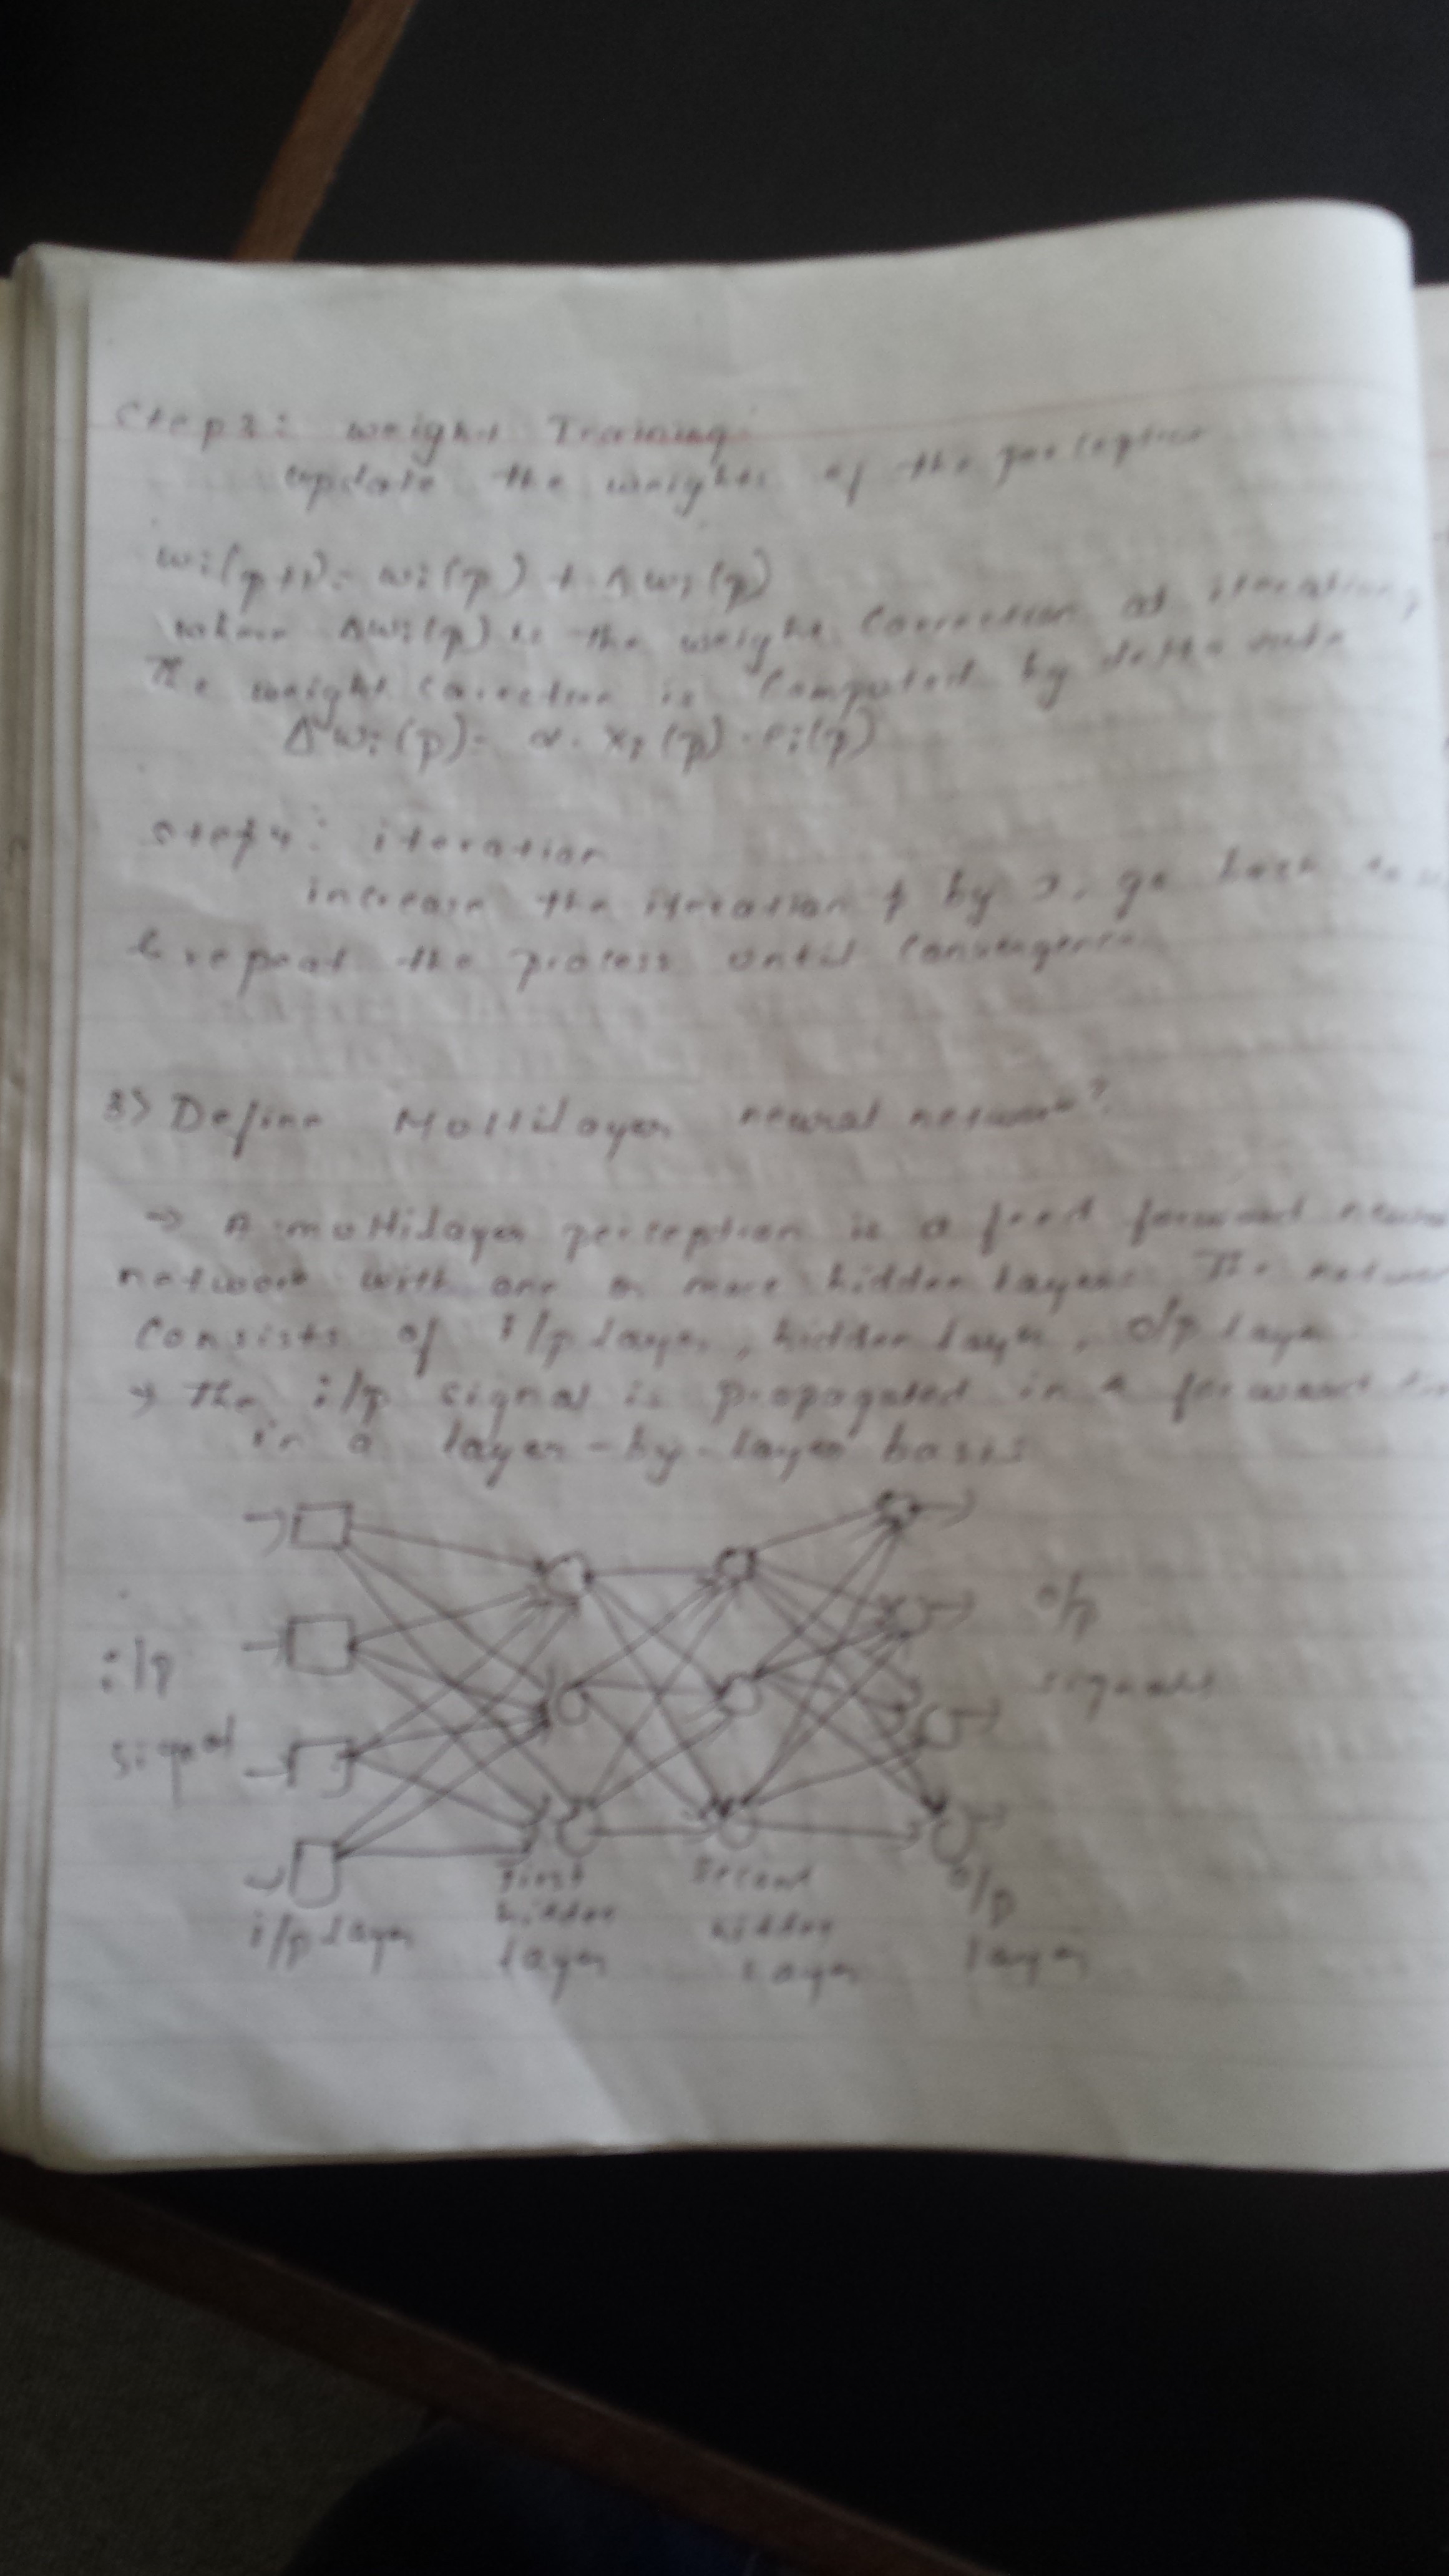 Step 3: Weight Training
update the weights of the perceptron
wi(p+1) = wi(p) + Δwi(p)
where Δwi(p) is the weight correction at iteration
The weight correction is computed by delta rule
Δwi(p) = α · xi(p) · ei(p)
step 4: iteration
increase the iteration p by 1, go back to
& repeat the process until convergence
3) Define Multilayer neural network?
→ A multilayer perceptron is a feed forward
network with one or more hidden layers. The
consists of i/p layer, hidden layer, o/p layer
→ The i/p signal is propagated in a forward
in a layer-by-layer basis
i/p
signal
o/p
signals
i/p layer
First
hidden
layer
Second
hidden
layer
o/p
layer